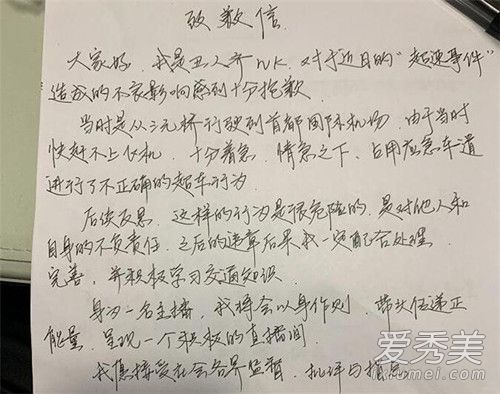 致歉信
大家好,我是 nk.对于近日的"超速事件"
造成的不良影响感到十分抱歉.
当时是从三元桥行驶到首都国际机场,由于当时
快赶不上飞机,十分着急,情急之下,占用应急车道
进行了不正确的超车行为
后续反思,这样的行为是很危险的,是对他人和
自身的不负责任,之后的违章后果我一定配合处理,
完善,并积极学习交通知识.
身为一名主播,我将会以身作则,带头传递正
能量,呈现一个积极的直播间.
我愿接受社会各界监督,批评与
爱秀美
ixiumei.com